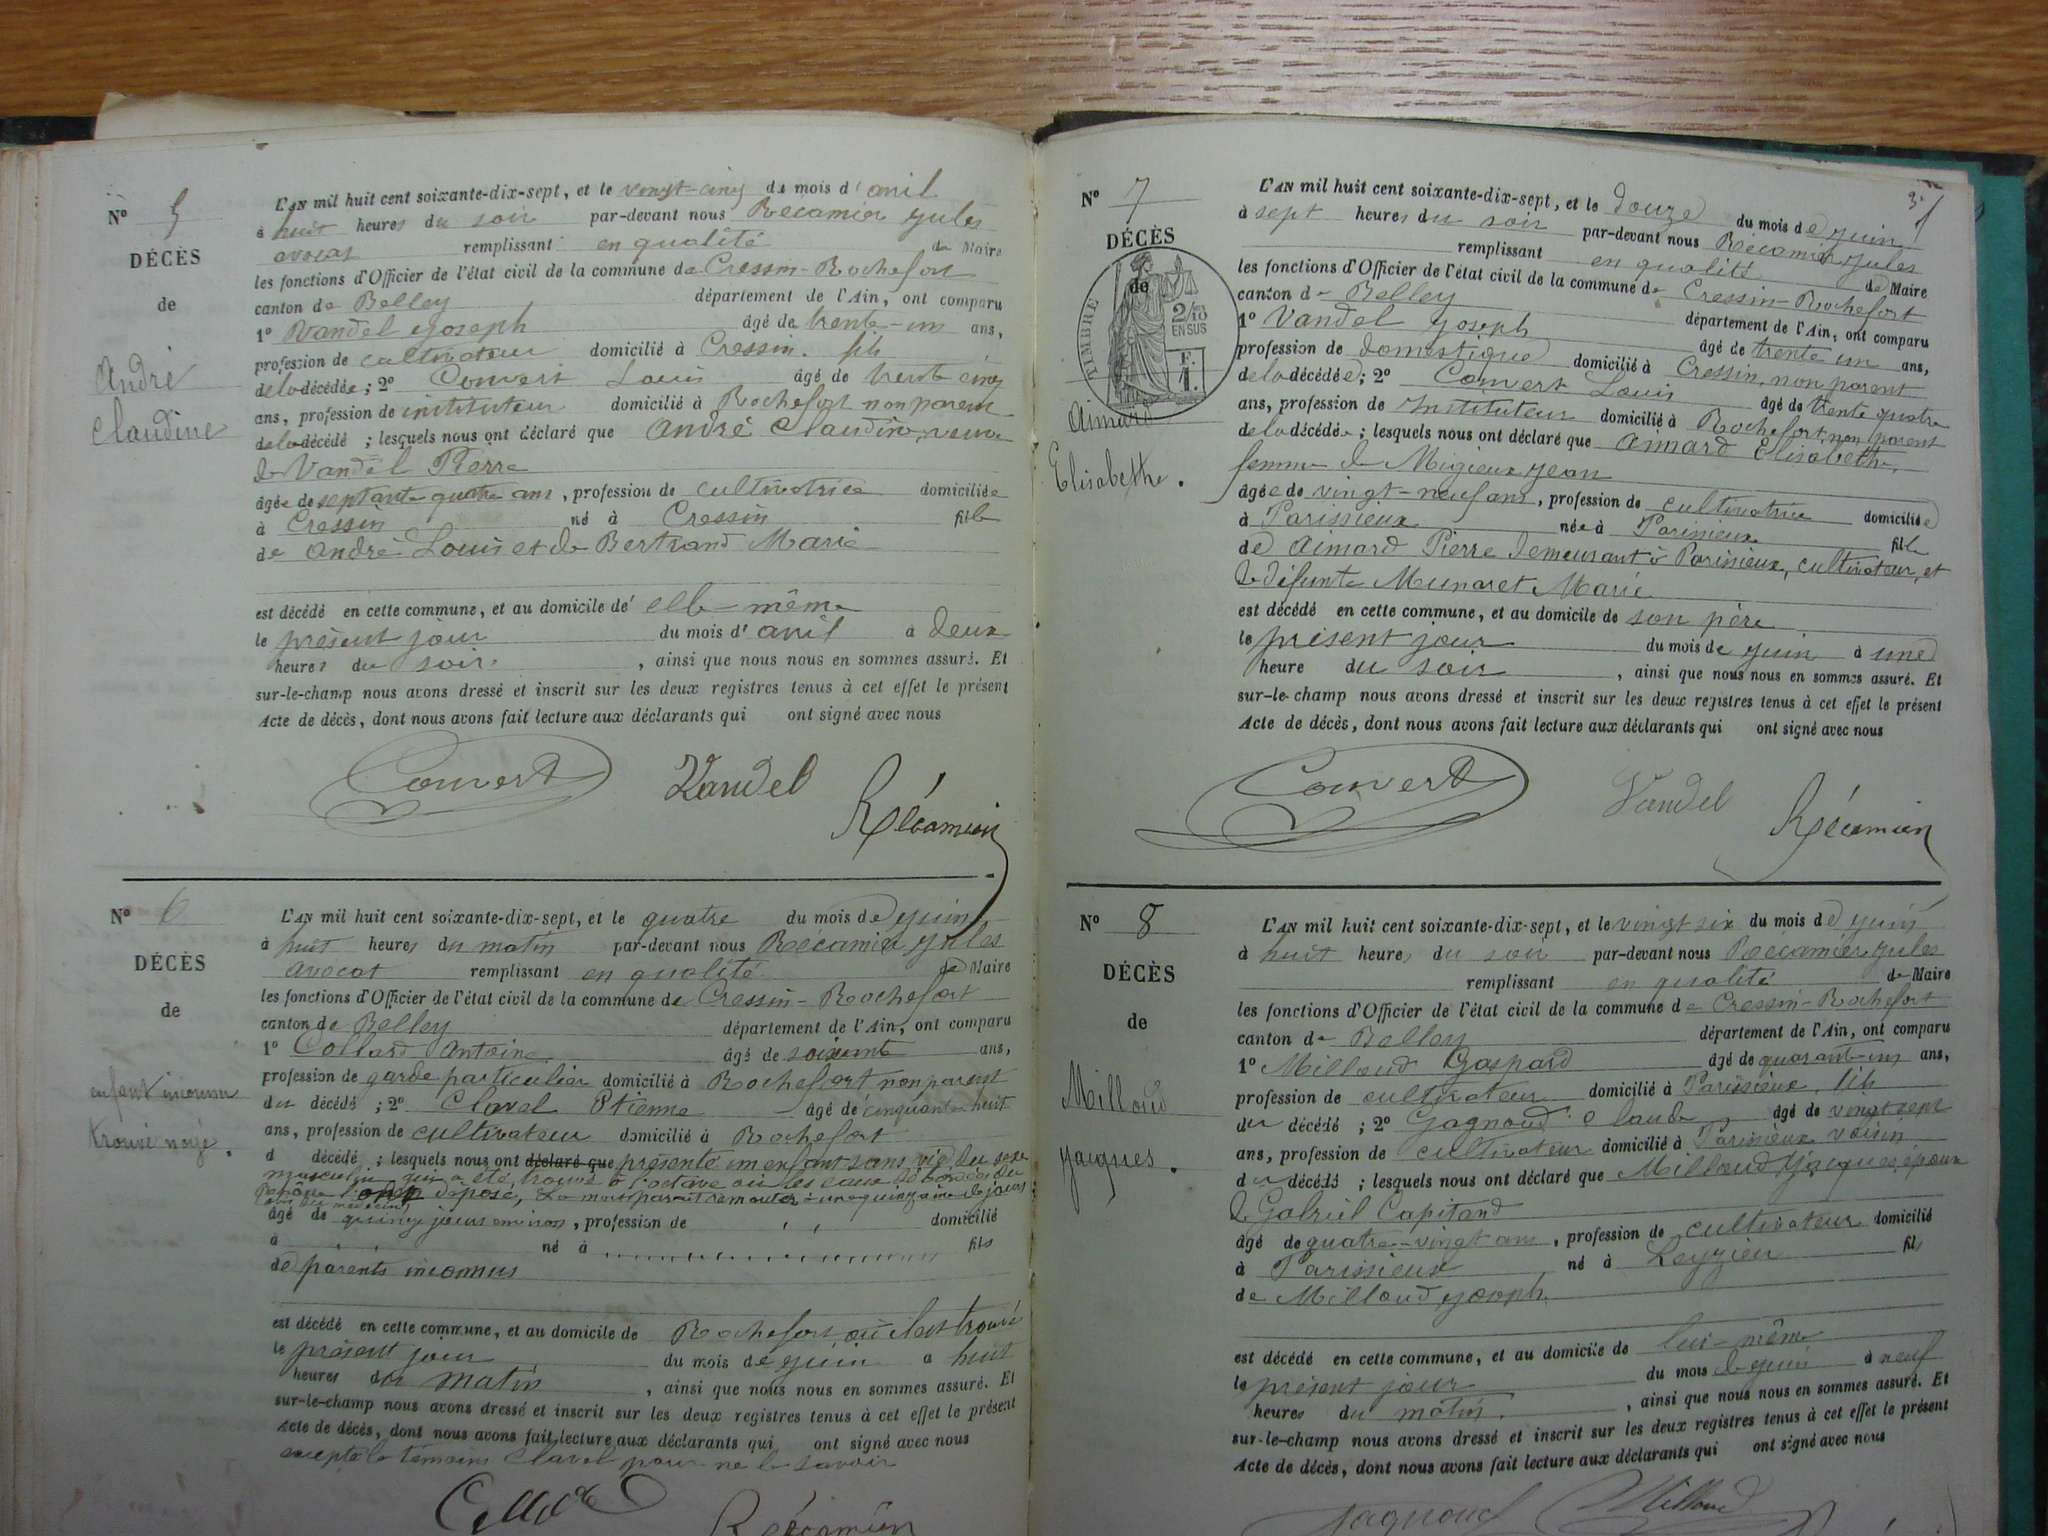 N° 5
DÉCÈS
de
André
Claudine
L'AN mil huit cent soixante-dix-sept, et le vingt-cinq du mois d'avril
à huit heures du soir par-devant nous Récamier Jules
avocat remplissant en qualité de Maire
les fonctions d'Officier de l'état civil de la commune de Cressin-Rochefort
canton de Belley département de l'Ain, ont comparu
1° Vandel Joseph âgé de trente-un ans,
profession de cultivateur domicilié à Cressin. fils
de la décédée ; 2° Convert Louis âgé de trente cinq
ans, profession de instituteur domicilié à Rochefort non parent
de la décédé ; lesquels nous ont déclaré que André Claudine, veuve
de Vandel Pierre
âgée de septante quatre ans, profession de cultivatrice domiciliée
à Cressin né à Cressin fille
de André Louis et de Bertrand Marie
est décédé en cette commune, et au domicile de elle-même
le présent jour du mois d'avril à deux
heures du soir, ainsi que nous nous en sommes assuré. Et
sur-le-champ nous avons dressé et inscrit sur les deux registres tenus à cet effet le présent
Acte de décès, dont nous avons fait lecture aux déclarants qui ont signé avec nous
Convert Vandel Récamier
N° 6
DÉCÈS
de
enfant inconnu
trouvé noyé.
L'AN mil huit cent soixante-dix-sept, et le quatre du mois de juin
à huit heures du matin par-devant nous Récamier Jules
avocat remplissant en qualité de Maire
les fonctions d'Officier de l'état civil de la commune de Cressin-Rochefort
canton de Belley département de l'Ain, ont comparu
1° Collard Antoine âgé de soixante ans,
profession de garde particulier domicilié à Rochefort non parent
du décédé ; 2° Clavel Etienne âgé de cinquante huit
ans, profession de cultivateur domicilié à Rochefort
d décédé ; lesquels nous ont déclaré que présenté un enfant sans vie du sexe
masculin qui a été trouvé à où les eaux du
déposé, La mort parait remonter à une quinzaine de jours
âgé de quinze jours environ, profession de domicilié
à né à fils
de parents inconnus
est décédé en cette commune, et au domicile de Rochefort où il est trouvé
le présent jour du mois de juin à huit
heures du matin, ainsi que nous nous en sommes assuré. Et
sur-le-champ nous avons dressé et inscrit sur les deux registres tenus à cet effet le présent
Acte de décès, dont nous avons fait lecture aux déclarants qui ont signé avec nous
excepté le témoin Clavel pour ne le savoir
Récamier
3
N° 7
DÉCÈS
de
TIMBRE
2/10
EN SUS
F.
1.
Aimard
Elisabethe.
L'AN mil huit cent soixante-dix-sept, et le douze du mois de juin
à sept heures du soir par-devant nous Récamier Jules
remplissant en qualité de Maire
les fonctions d'Officier de l'état civil de la commune de Cressin-Rochefort
canton de Belley département de l'Ain, ont comparu
1° Vandel Joseph âgé de trente un ans,
profession de domestique domicilié à Cressin, non parent
de la décédée ; 2° Convert Louis âgé de trente quatre
ans, profession de Instituteur domicilié à Rochefort, non parent
de la décédée ; lesquels nous ont déclaré que Aimard Elisabethe,
femme de Migieux Jean
âgée de vingt-neuf ans, profession de cultivatrice domiciliée
à Parissieux née à Parissieux fille
de Aimard Pierre demeurant à Parissieux, cultivateur, et
de défunte Munaret Marie
est décédé en cette commune, et au domicile de son père
le présent jour du mois de juin à une
heure du soir, ainsi que nous nous en sommes assuré. Et
sur-le-champ nous avons dressé et inscrit sur les deux registres tenus à cet effet le présent
Acte de décès, dont nous avons fait lecture aux déclarants qui ont signé avec nous
Convert Vandel Récamier
N° 8
DÉCÈS
de
Milloud
Jacques.
L'AN mil huit cent soixante-dix-sept, et le vingt six du mois de juin
à huit heures du soir par-devant nous Récamier Jules
remplissant en qualité de Maire
les fonctions d'Officier de l'état civil de la commune de Cressin-Rochefort
canton de Belley département de l'Ain, ont comparu
1° Milloud Gaspard âgé de quarante-un ans,
profession de cultivateur domicilié à Parissieux, fils
du décédé ; 2° Gagnoud Claude âgé de vingt sept
ans, profession de cultivateur domicilié à Parissieux voisin
du décédé ; lesquels nous ont déclaré que Milloud Jacques, époux
de Gabriel Capitand
âgé de quatre-vingt ans, profession de cultivateur domicilié
à Parissieux né à Leyzieu fils
de Milloud Joseph
est décédé en cette commune, et au domicile de lui-même
le présent jour du mois de juin à neuf
heures du matin, ainsi que nous nous en sommes assuré. Et
sur-le-champ nous avons dressé et inscrit sur les deux registres tenus à cet effet le présent
Acte de décès, dont nous avons fait lecture aux déclarants qui ont signé avec nous
Gagnoud Milloud